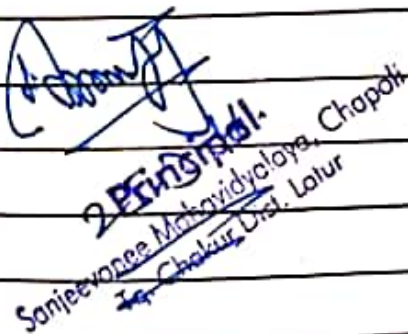 Principal
Sanjeevanee Mahavidyalaya, Chapoli
Tq. Chakur Dist. Latur